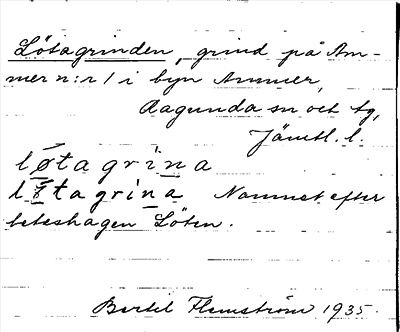 Lötagrinden, grind på Am-
mer n:r 1 i byn Ammer,
Ragunda sn och tg,
Jämtl. l.
løtagrina
løtagrina Namnet efter
beteshagen Löten.
Bertil Flemström 1935.